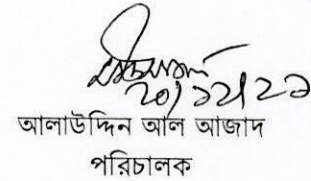 ২০/১২/২১
আলাউদ্দিন আল আজাদ
পরিচালক